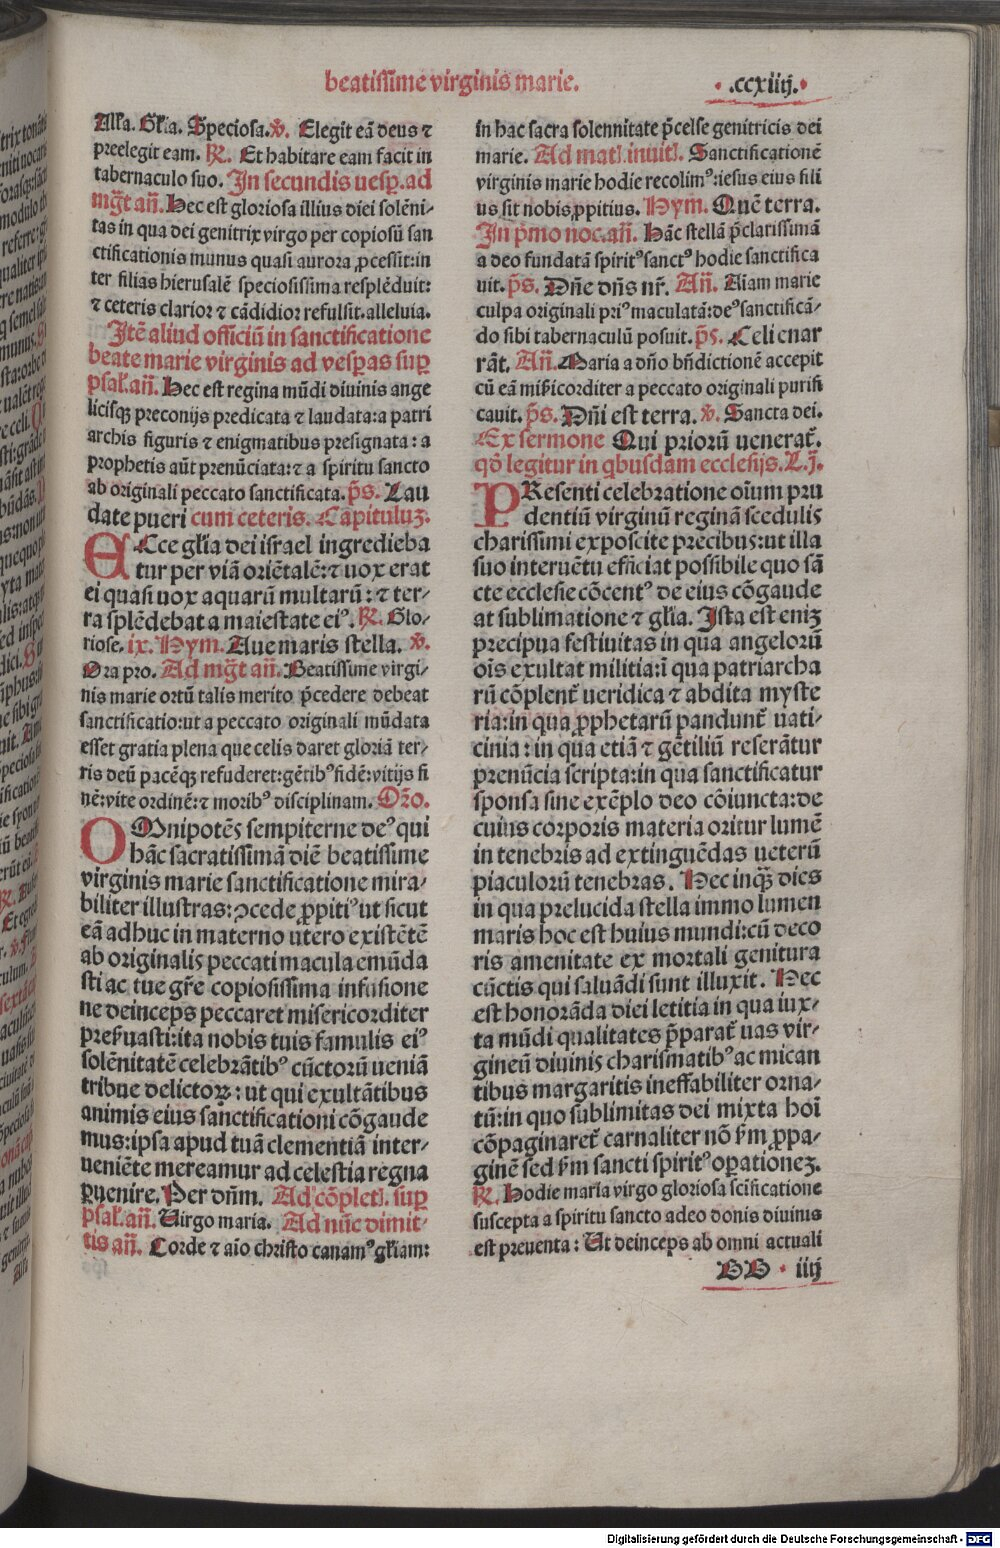 beatissime virginis marie.
.ccxiiij.
Alla. Gl̄ia. Speciosa. v̄. Elegit eā deus ⁊
preelegit eam. ℟. Et habitare eam facit in
tabernaculo suo. In secundis uesp̱. ad
mḡt an̄. Hec est gloriosa illius diei solēni-
tas in qua dei genitrix virgo per copiosū san
ctificationis munus quasi aurora ꝓcessit: in
ter filias hierusalē speciosissima resplēduit:
⁊ ceteris clarior ⁊ cādidior refulsit. alleluia.
Itē aliud officiū in sanctificatione
beate marie virginis ad vesp̱as sup̱
psal̄. an̄. Hec est regina mūdi diuinis ange
licisqꝫ preconijs predicata ⁊ laudata: a patri
archis figuris ⁊ enigmatibus presignata: a
prophetis aūt prenūciata: ⁊ a spiritu sancto
ab originali peccato sanctificata. p̄s. Lau
date pueri cum ceteris. Capituluꝫ.
ECce gl̄ia dei israel ingredieba
tur per viā oriētalē: ⁊ uox erat
ei quasi uox aquarū multarū: ⁊ ter-
ra splēdebat a maiestate eiꝰ. ℟. Glo-
riose. ix. Hym. Aue maris stella. v̄.
Ora pro. Ad mḡt an̄. Beatissime virgi-
nis marie ortū talis merito p̄cedere debeat
sanctificatio: ut a peccato originali mūdata
esset gratia plena que celis daret gloriā ter-
ris deū pacēqꝫ refuderet: gētibꝰ fidē: vitijs fi
nē: vite ordinē: ⁊ moribꝰ disciplinam. Or̄o.
OMnipotēs sempiterne deꝰ qui
hāc sacratissimā diē beatissime
virginis marie sanctificatione mira-
biliter illustras: ꝯcede ꝓpitiꝰ ut sicut
eā adhuc in materno utero existētē
ab originalis peccati macula emūda
sti ac tue gr̄e copiosissima infusione
ne deinceps peccaret misericorditer
preẜuasti: ita nobis tuis famulis eiꝰ
solēnitatē celebrātibꝰ cūctorū ueniā
tribue delictoꝝ: ut qui exultātibus
animis eius sanctificationi cōgaude
mus: ipsa apud tuā clementiā inter-
ueniēte mereamur ad celestia regna
ꝑuenire. Per dn̄m. Ad cōpletl. sup̱
psal̄. an̄. Uirgo maria. Ad nūc dimit-
tis an̄. Corde ⁊ aīo christo canamꝰ gl̄iam:
in hac sacra solennitate p̄celse genitricis dei
marie. Ad matl. inuitl. Sanctificationē
virginis marie hodie recolimꝰ: iesus eius fili
us sit nobis ꝓpitius. Hym. Quē terra.
In p̄mo noc. an̄. Hāc stellā p̄clarissimā
a deo fundatā spiritꝰ sanctꝰ hodie sanctifica
uit. p̄s. Dn̄e dn̄s nr̄. An̄. Aīam marie
culpa originali priꝰ maculatā: deꝰ sanctificā-
do sibi tabernaculū posuit. p̄s. Celi enar
rāt. An̄. Maria a dn̄o bn̄dictionē accepit
cū eā mīẜicorditer a peccato originali purifi
cauit. p̄s. Dn̄i est terra. v̄. Sancta dei.
Ex sermone Qui priorū uenerat̄.
qd̄ legitur in qbusdam ecclesijs. L. j̄.
PResenti celebratione oīum pru
dentiū virginū reginā scedulis
charissimi exposcite precibus: ut illa
suo interuētu efficiat possibile quo sā
cte ecclesie cōcentꝰ de eius cōgaude
at sublimatione ⁊ gl̄ia. Ista est eniꝫ
precipua festiuitas in qua angelorū
oīs exultat militia: ī qua patriarcha
rū cōplent̄ ueridica ⁊ abdita myste
ria: in qua ꝓphetarū pandunt̄ uati-
cinia: in qua etiā ⁊ gētiliū reserātur
prenūcia scripta: in qua sanctificatur
sponsa sine exēplo deo cōiuncta: de
cuius corporis materia oritur lumē
in tenebris ad extinguēdas ueterū
piaculorū tenebras. Hec inqꝫ dies
in qua prelucida stella immo lumen
maris hoc est huius mundi: cū deco
ris amenitate ex mortali genitura
cūctis qui saluādi sunt illuxit. Hec
est honorāda diei letitia in qua iux-
ta mūdi qualitates p̄parat̄ uas vir-
gineū diuinis charismatibꝰ ac mican
tibus margaritis ineffabiliter orna-
tū: in quo sublimitas dei mixta hoī
cōpaginaret̄ carnaliter nō ẜm ꝓpa-
ginē sed ẜm sancti spiritꝰ oꝑationeꝫ.
℟. Hodie maria virgo gloriosa scīficatione
suscepta a spiritu sancto adeo donis diuinis
est preuenta: Ut deinceps ab omni actuali
GG iiij
Digitalisierung gefördert durch die Deutsche Forschungsgemeinschaft - DFG